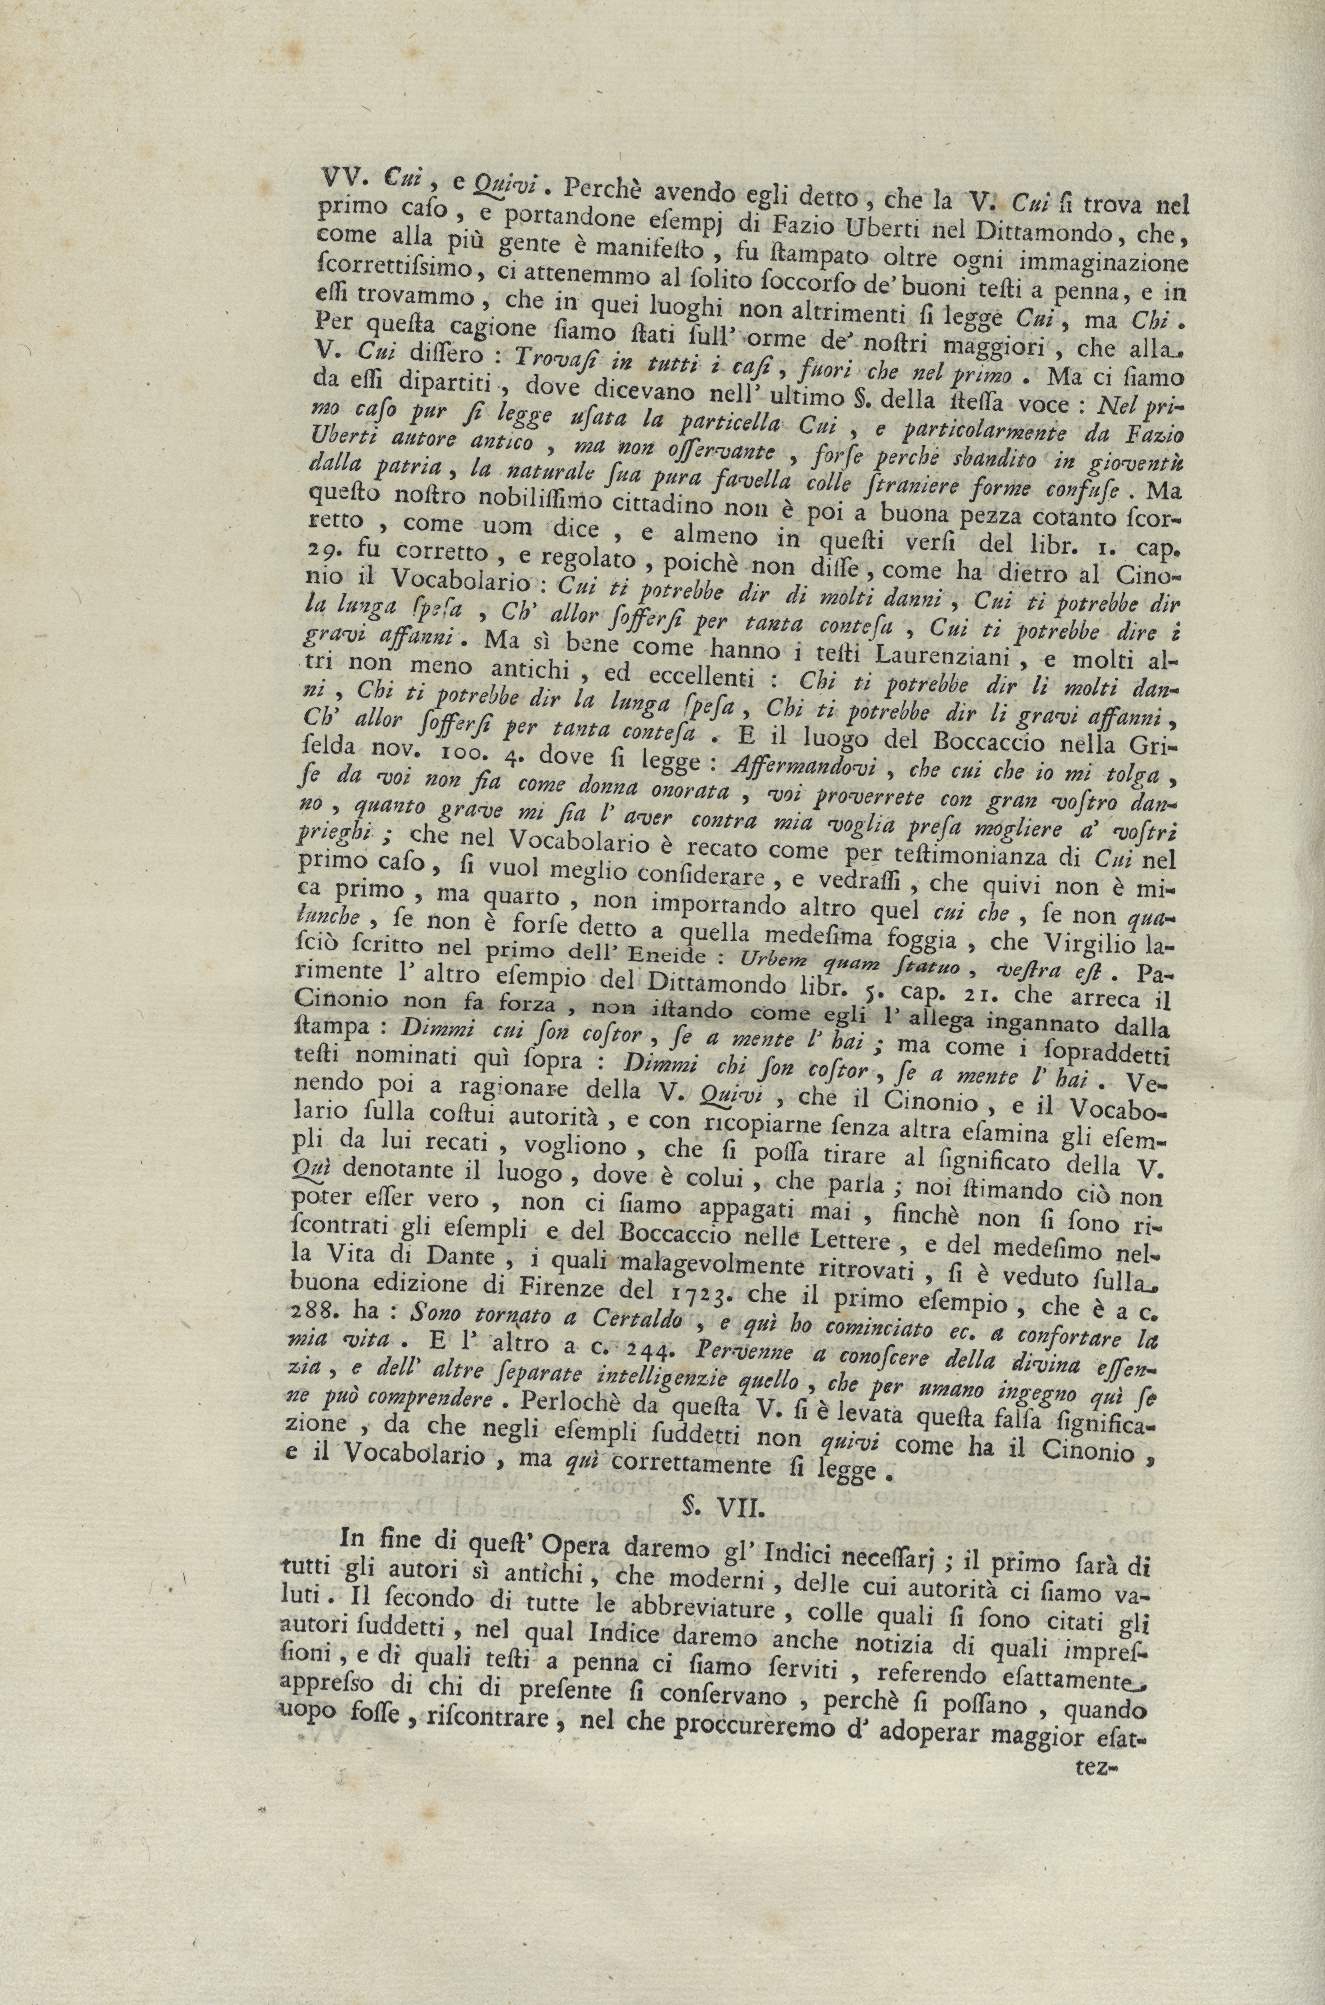 VV. Cui, e Quivi. Perchè avendo egli detto, che la V. Cui ſi trova nel
primo caſo, e portandone eſempj di Fazio Uberti nel Dittamondo, che,
come alla più gente è manifeſto, fu ſtampato oltre ogni immaginazione
ſcorrettiſsimo, ci attenemmo al ſolito ſoccorſo de' buoni teſti a penna, e in
eſſi trovammo, che in quei luoghi non altrimenti ſi legge Cui, ma Chi.
Per queſta cagione ſiamo ſtati ſull' orme de' noſtri maggiori, che alla
V. Cui diſſero: Trovaſi in tutti i caſi, fuori che nel primo. Ma ci ſiamo
da eſſi dipartiti, dove dicevano nell' ultimo §. della ſteſſa voce: Nel pri-
mo caſo pur ſi legge uſata la particella Cui, e particolarmente da Fazio
Uberti autore antico, ma non oſſervante, forſe perchè sbandito in gioventù
dalla patria, la naturale ſua pura favella colle ſtraniere forme confuſe. Ma
queſto noſtro nobiliſſimo cittadino non è poi a buona pezza cotanto ſcor-
retto, come uom dice, e almeno in queſti verſi del libr. 1. cap.
29. fu corretto, e regolato, poichè non diſſe, come ha dietro al Cino-
nio il Vocabolario: Cui ti potrebbe dir di molti danni, Cui ti potrebbe dir
la lunga ſpeſa, Ch' allor ſofferſi per tanta conteſa, Cui ti potrebbe dire i
gravi affanni. Ma sì bene come hanno i teſti Laurenziani, e molti al-
tri non meno antichi, ed eccellenti: Chi ti potrebbe dir li molti dan-
ni, Chi ti potrebbe dir la lunga ſpeſa, Chi ti potrebbe dir li gravi affanni,
Ch' allor ſofferſi per tanta conteſa. E il luogo del Boccaccio nella Gri-
ſelda nov. 100. 4. dove ſi legge: Affermandovi, che cui che io mi tolga,
ſe da voi non fia come donna onorata, voi proverrete con gran voſtro dan-
no, quanto grave mi ſia l' aver contra mia voglia preſa mogliere a' voſtri
prieghi; che nel Vocabolario è recato come per teſtimonianza di Cui nel
primo caſo, ſi vuol meglio conſiderare, e vedraſſi, che quivi non è mi-
ca primo, ma quarto, non importando altro quel cui che, ſe non qua-
lunche, ſe non è forſe detto a quella medeſima foggia, che Virgilio la-
ſciò ſcritto nel primo dell' Eneide: Urbem quam ſtatuo, veſtra eſt. Pa-
rimente l' altro eſempio del Dittamondo libr. 5. cap. 21. che arreca il
Cinonio non fa forza, non iſtando come egli l' allega ingannato dalla
ſtampa: Dimmi cui ſon coſtor, ſe a mente l' hai; ma come i ſopraddetti
teſti nominati quì ſopra: Dimmi chi ſon coſtor, ſe a mente l' hai. Ve-
nendo poi a ragionare della V. Quivi, che il Cinonio, e il Vocabo-
lario ſulla coſtui autorità, e con ricopiarne ſenza altra eſamina gli eſem-
pli da lui recati, vogliono, che ſi poſſa tirare al ſignificato della V.
Quì denotante il luogo, dove è colui, che parla; noi ſtimando ciò non
poter eſſer vero, non ci ſiamo appagati mai, finchè non ſi ſono ri-
ſcontrati gli eſempli e del Boccaccio nelle Lettere, e del medeſimo nel-
la Vita di Dante, i quali malagevolmente ritrovati, ſi è veduto ſulla
buona edizione di Firenze del 1723. che il primo eſempio, che è a c.
288. ha: Sono tornato a Certaldo, e quì ho cominciato ec. a confortare la
mia vita. E l' altro a c. 244. Pervenne a conoſcere della divina eſſen-
zia, e dell' altre ſeparate intelligenzie quello, che per umano ingegno quì ſe
ne può comprendere. Perlochè da queſta V. ſi è levata queſta falſa ſignifica-
zione, da che negli eſempli ſuddetti non quivi come ha il Cinonio,
e il Vocabolario, ma quì correttamente ſi legge.
§. VII.
In fine di queſt' Opera daremo gl' Indici neceſſarj; il primo ſarà di
tutti gli autori sì antichi, che moderni, delle cui autorità ci ſiamo va-
luti. Il ſecondo di tutte le abbreviature, colle quali ſi ſono citati gli
autori ſuddetti, nel qual Indice daremo anche notizia di quali impreſ-
ſioni, e di quali teſti a penna ci ſiamo ſerviti, referendo eſattamente
appreſſo di chi di preſente ſi conſervano, perchè ſi poſſano, quando
uopo foſſe, riſcontrare, nel che proccureremo d' adoperar maggior eſat-
tez-